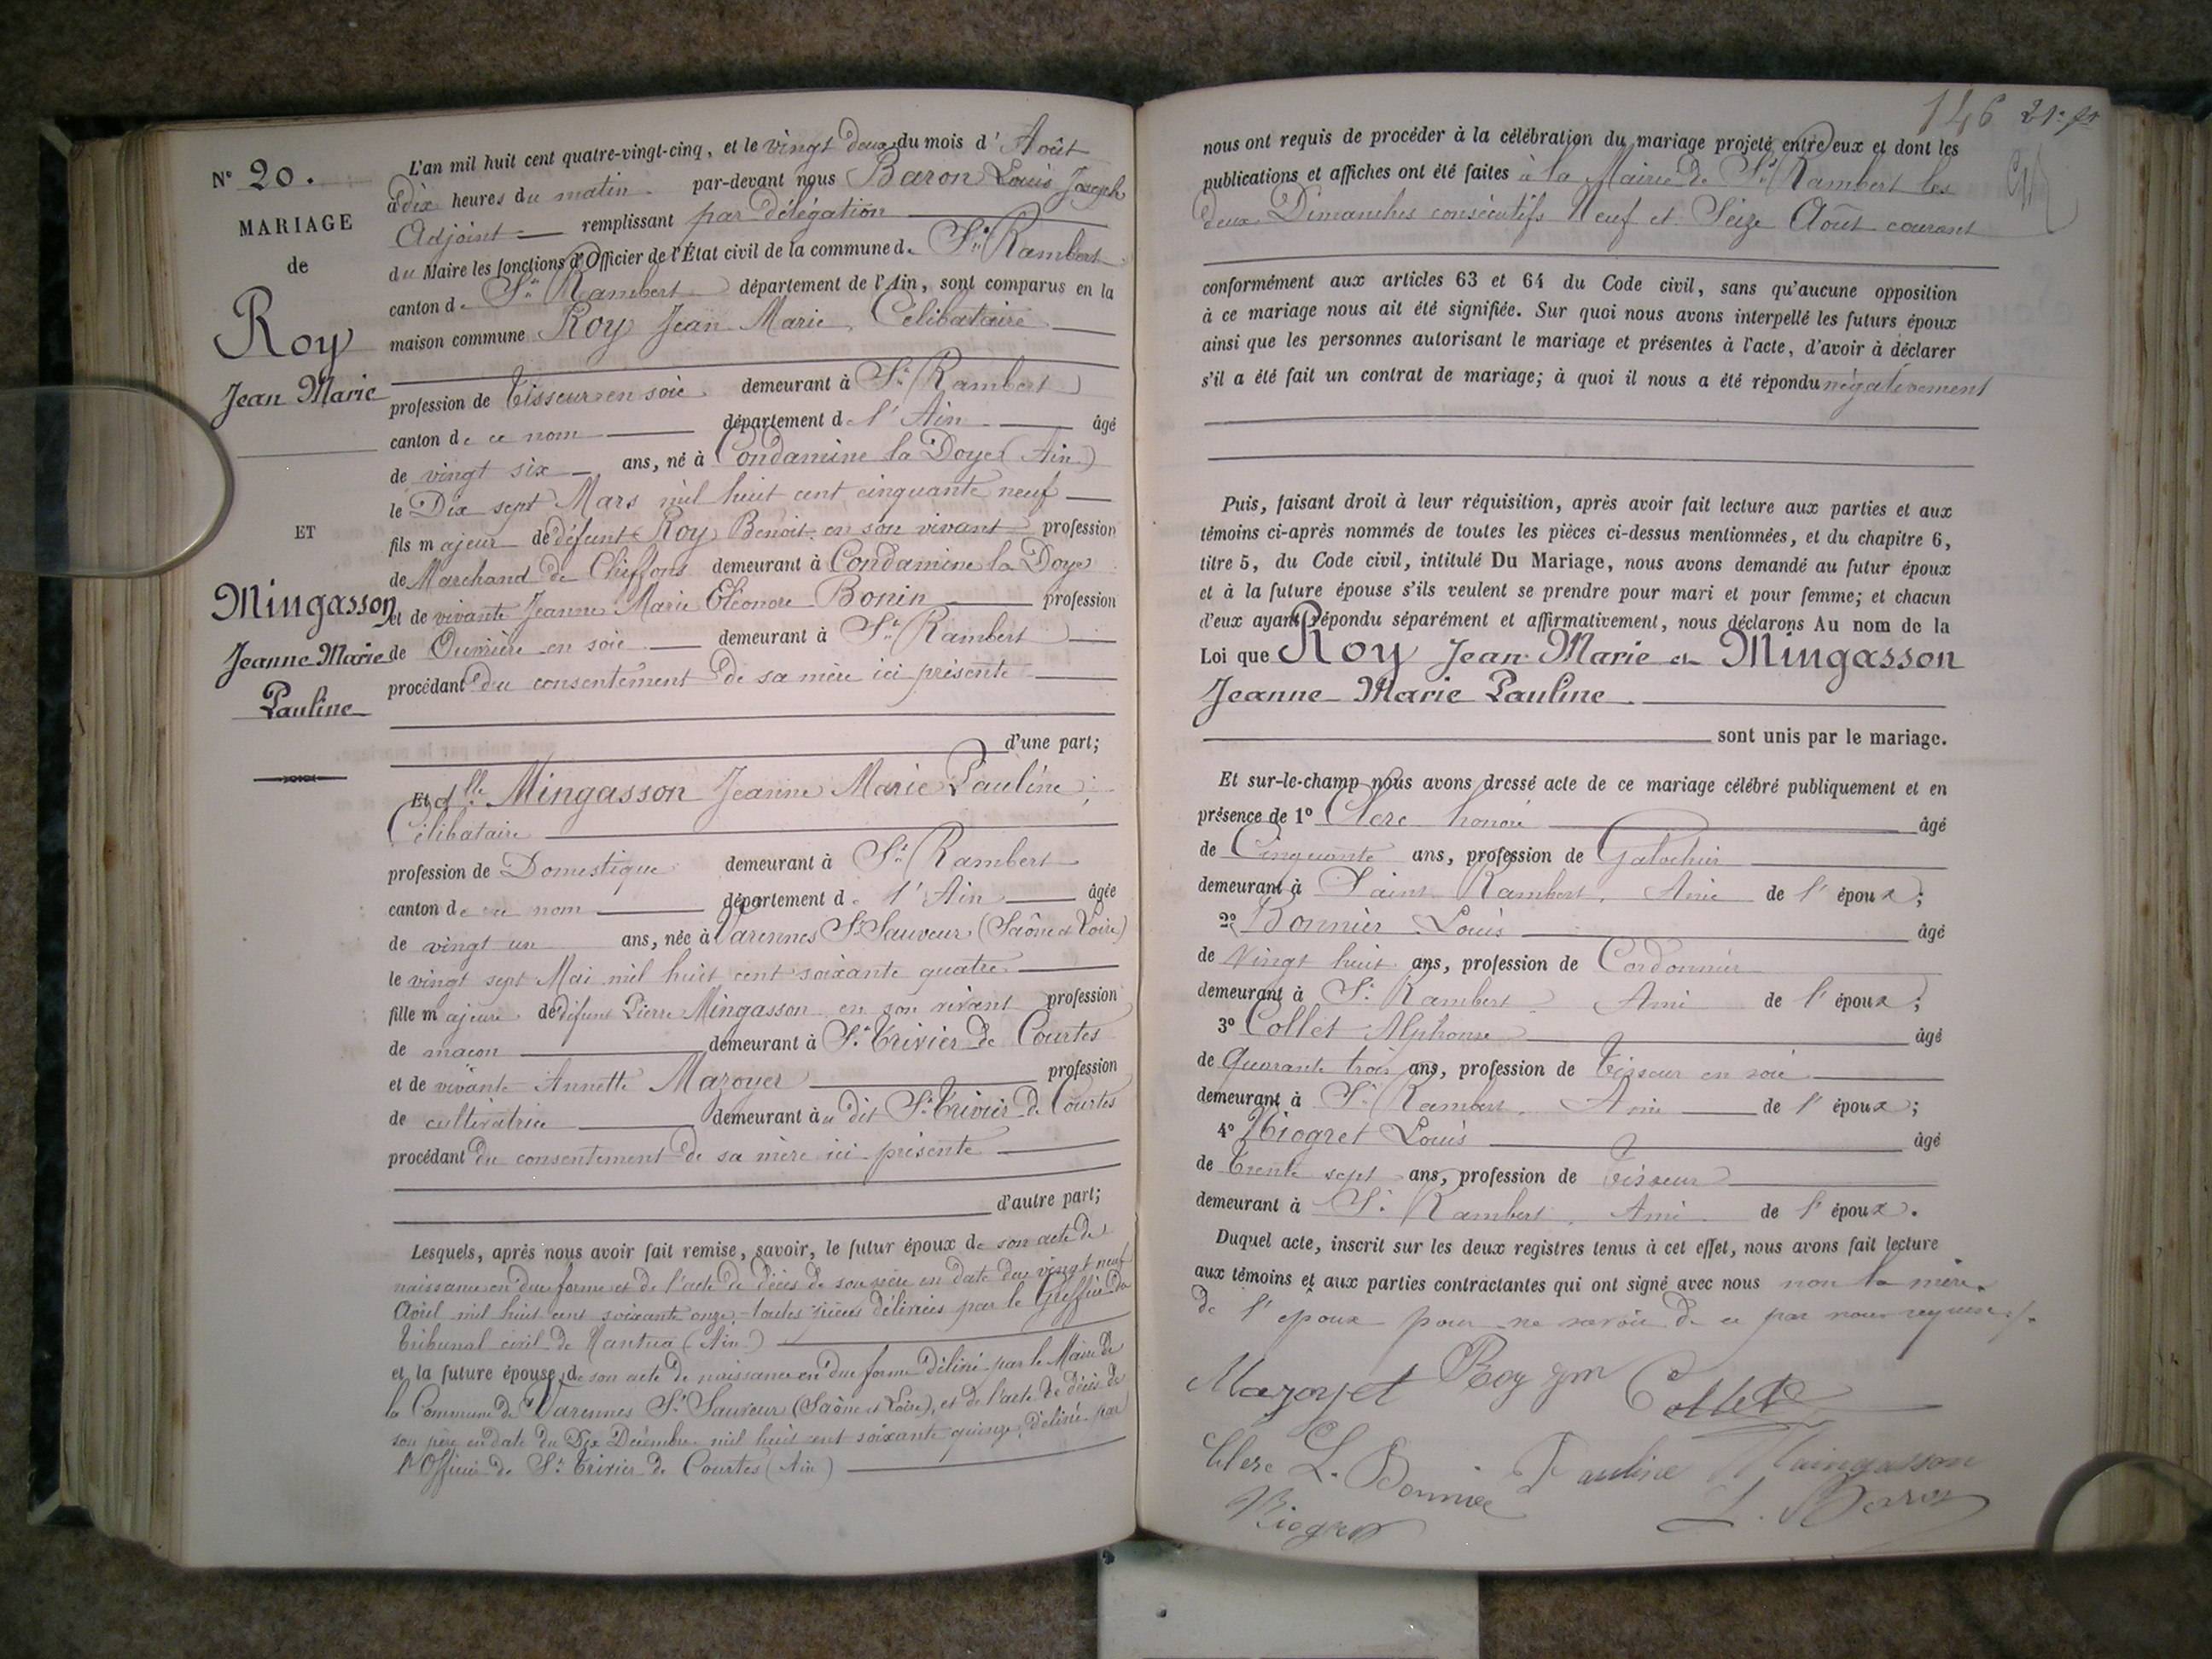 N° 20.
MARIAGE
de
Roy
Jean Marie
ET
Mingasson
Jeanne Marie
Pauline
L'an mil huit cent quatre-vingt-cinq, et le vingt deux du mois d'Août
à dix heures du matin par-devant nous Baron Louis Joseph
Adjoint remplissant par délégation
du Maire les fonctions d'Officier de l'État civil de la commune de St Rambert
canton de St Rambert département de l'Ain, sont comparus en la
maison commune Roy Jean Marie, Célibataire
profession de Tisseur en soie demeurant à St Rambert
canton de ce nom département de l'Ain âgé
de vingt six ans, né à Condamine la Doye (Ain)
le Dix sept Mars mil huit cent cinquante neuf
fils majeur de défunt Roy Benoit en son vivant profession
de Marchand de Chiffons demeurant à Condamine la Doye
et de vivante Jeanne Marie Eléonore Bonin profession
de Ouvrière en soie demeurant à St Rambert
procédant du consentement de sa mère ici présente
d'une part;
Et dlle Mingasson Jeanne Marie Pauline,
Célibataire
profession de Domestique demeurant à St Rambert
canton de ce nom département de l'Ain âgée
de vingt un ans, née à Varennes St Sauveur (Saône et Loire)
le vingt sept Mai mil huit cent soixante quatre
fille majeure de défunt Pierre Mingasson en son vivant profession
de maçon demeurant à St Trivier de Courtes
et de vivante Annette Mazoyer profession
de cultivatrice demeurant à u dit St Trivier de Courtes
procédant du consentement de sa mère ici présente
d'autre part;
Lesquels, après nous avoir fait remise, savoir, le futur époux de son acte de
naissance en due forme et de l'acte de décès de son père en date du vingt neuf
Avril mil huit cent soixante onze, toutes pièces délivrées par le Greffier du
Tribunal civil de Nantua (Ain)
et la future épouse, de son acte de naissance en due forme délivré par le Maire de
la Commune de Varennes St Sauveur (Saône et Loire), et de l'acte de décès de
son père en date du Dix Décembre mil huit cent soixante quinze, délivré par
l'Officier de St Trivier de Courtes (Ain)
146
nous ont requis de procéder à la célébration du mariage projeté entre eux et dont les
publications et affiches ont été faites à la Mairie de St Rambert les
deux Dimanches consécutifs Neuf et Seize Août courant
conformément aux articles 63 et 64 du Code civil, sans qu'aucune opposition
à ce mariage nous ait été signifiée. Sur quoi nous avons interpellé les futurs époux
ainsi que les personnes autorisant le mariage et présentes à l'acte, d'avoir à déclarer
s'il a été fait un contrat de mariage; à quoi il nous a été répondu négativement
Puis, faisant droit à leur réquisition, après avoir fait lecture aux parties et aux
témoins ci-après nommés de toutes les pièces ci-dessus mentionnées, et du chapitre 6,
titre 5, du Code civil, intitulé Du Mariage, nous avons demandé au futur époux
et à la future épouse s'ils veulent se prendre pour mari et pour femme; et chacun
d'eux ayant répondu séparément et affirmativement, nous déclarons Au nom de la
Loi que Roy Jean Marie et Mingasson
Jeanne Marie Pauline
sont unis par le mariage.
Et sur-le-champ nous avons dressé acte de ce mariage célébré publiquement et en
présence de 1° Clerc honoré âgé
de Cinquante ans, profession de Galochier
demeurant à Saint Rambert, Ami de l'époux;
2° Bonnier Louis âgé
de Vingt huit ans, profession de Cordonnier
demeurant à St Rambert, Ami de l'époux;
3° Collet Alphonse âgé
de Quarante trois ans, profession de Tisseur en soie
demeurant à St Rambert, Ami de l'époux;
4° Niogret Louis âgé
de Trente sept ans, profession de Tisseur
demeurant à St Rambert, Ami de l'époux.
Duquel acte, inscrit sur les deux registres tenus à cet effet, nous avons fait lecture
aux témoins et aux parties contractantes qui ont signé avec nous non la mère
de l'époux pour ne savoir de ce par nous requise
Mazoyet Roy jm Collet
Clerc L. Bonnier Pauline Maingasson
Niogret